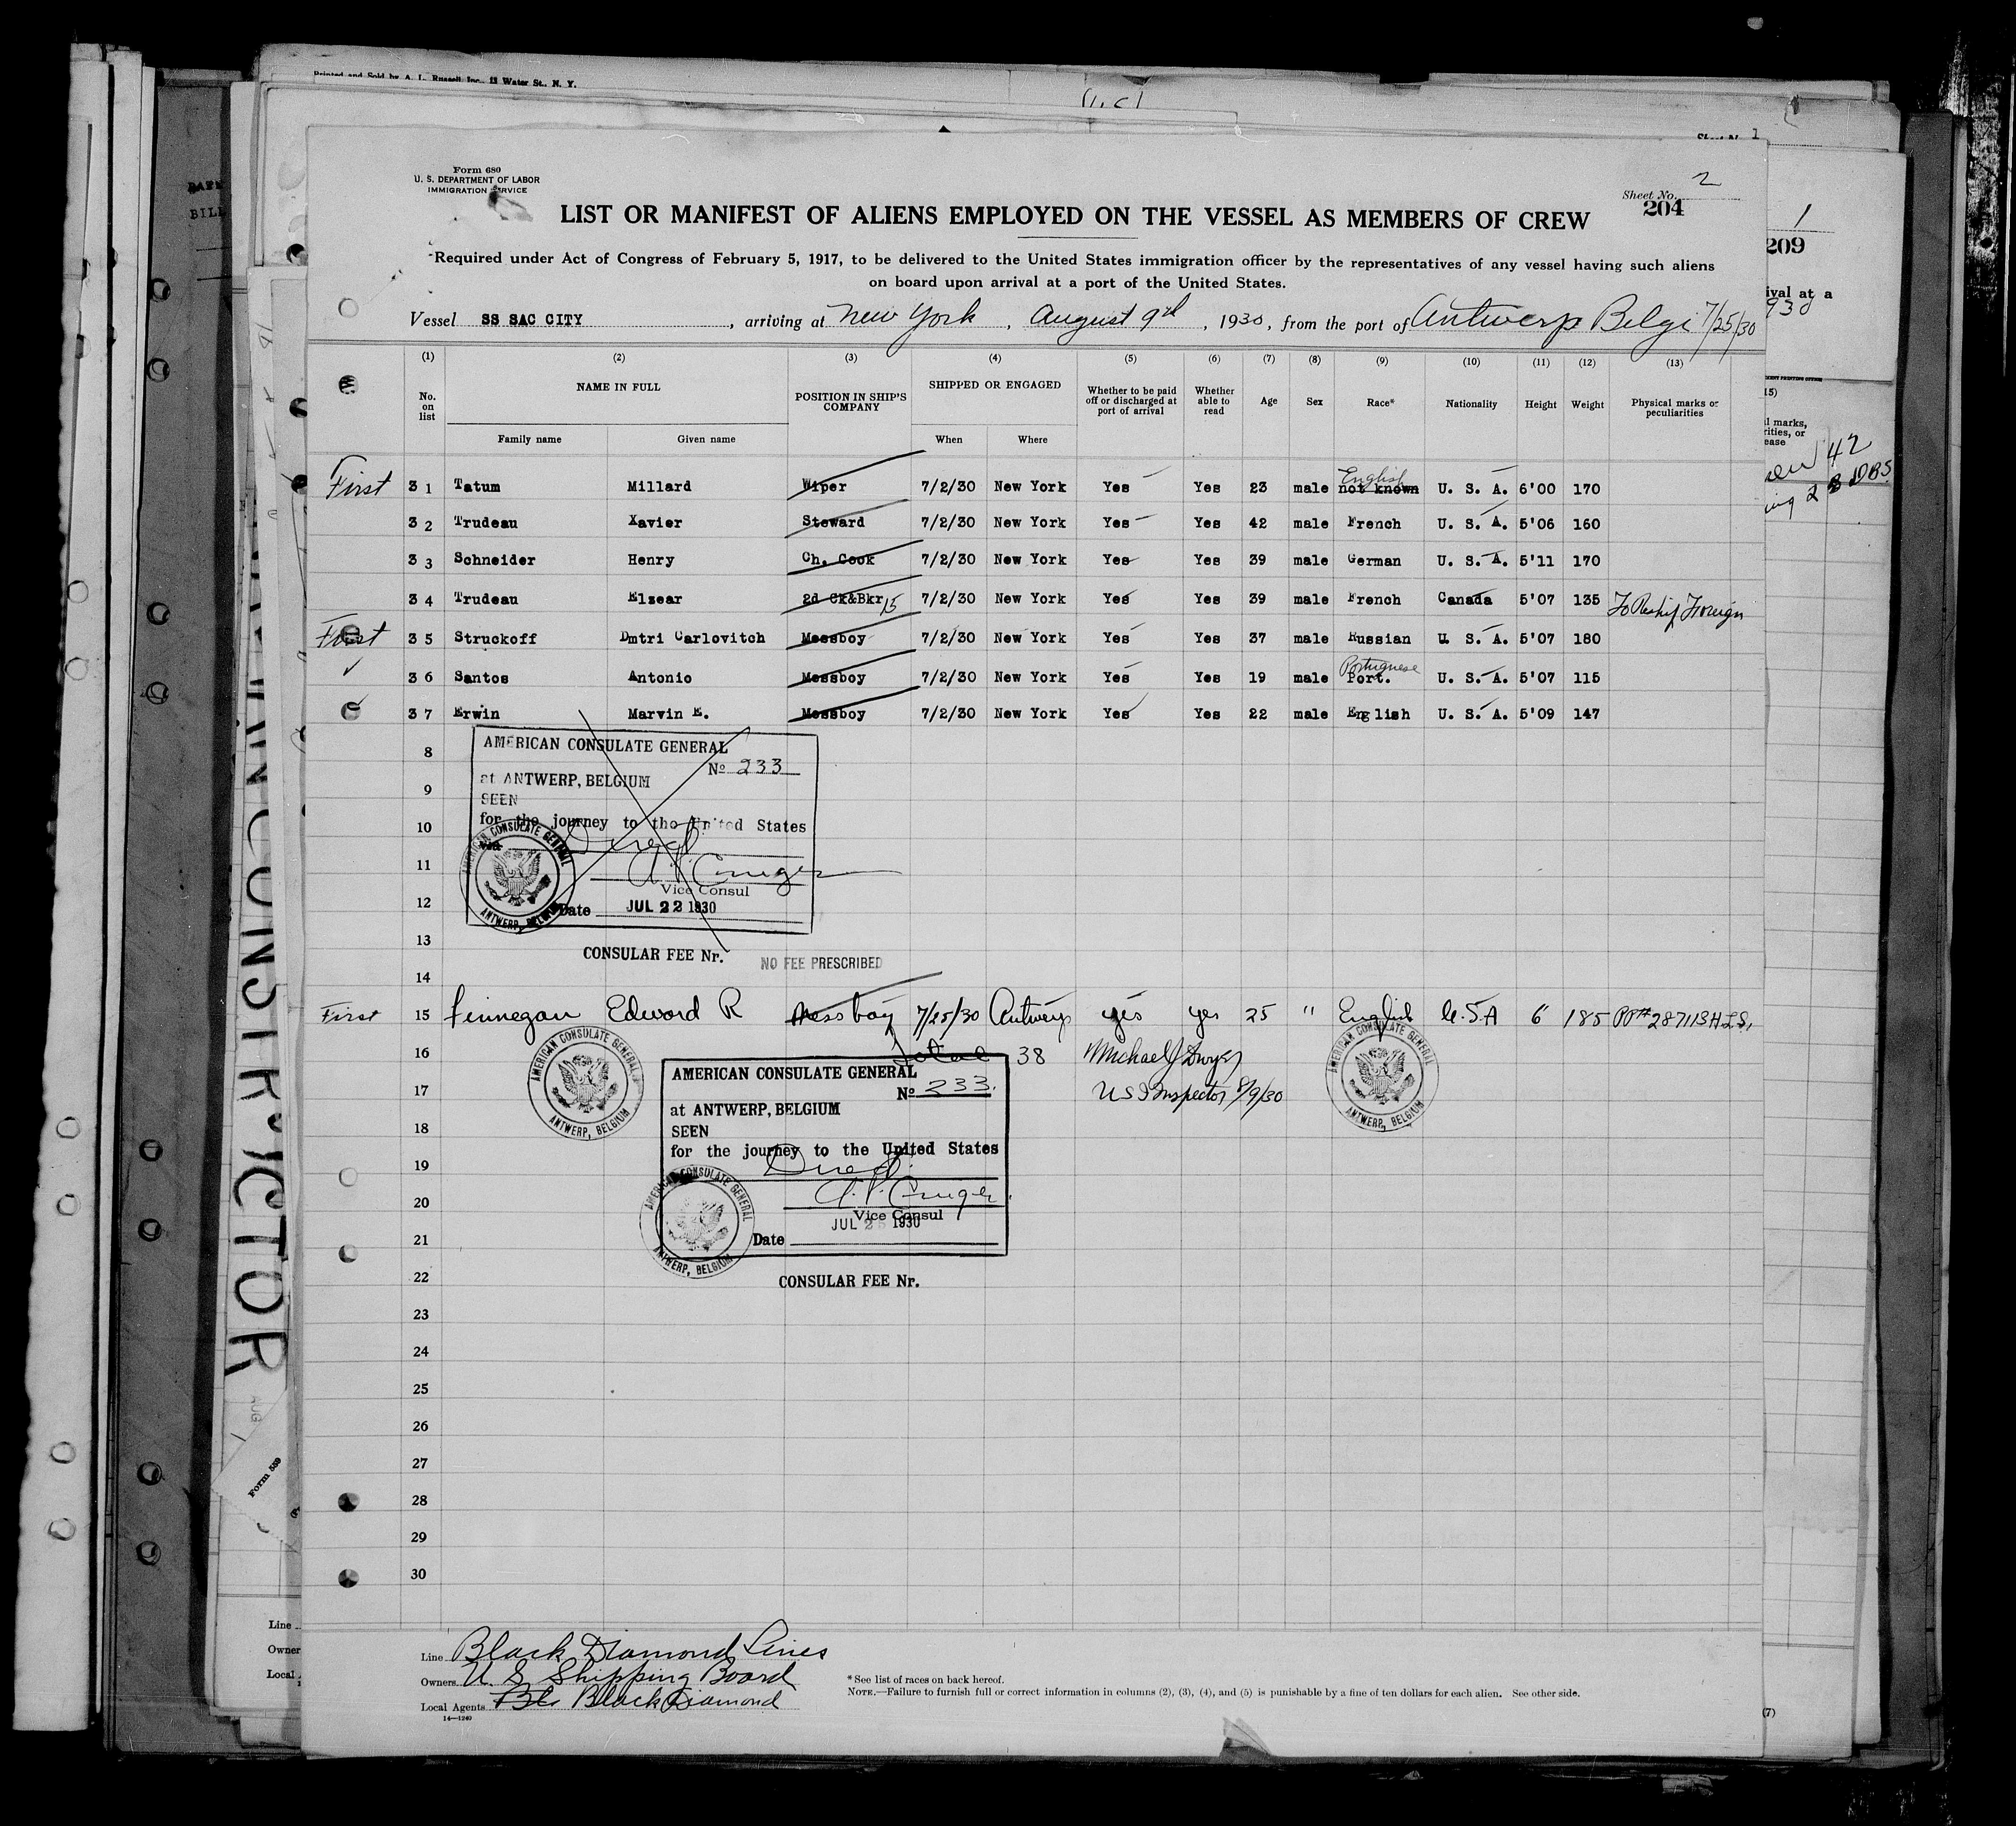 Printed and Sold by A. L. Russell Inc., 11 Water St., N. Y.
Form 680
U. S. DEPARTMENT OF LABOR
IMMIGRATION SERVICE
Sheet No. 2
204
LIST OR MANIFEST OF ALIENS EMPLOYED ON THE VESSEL AS MEMBERS OF CREW
Required under Act of Congress of February 5, 1917, to be delivered to the United States immigration officer by the representatives of any vessel having such aliens
on board upon arrival at a port of the United States.
Vessel SS SAC CITY, arriving at New York, August 9th, 1930, from the port of Antwerp Belgi 7/25/30
(1) (2) (3) (4) (5) (6) (7) (8) (9) (10) (11) (12) (13)
No. on list NAME IN FULL Family name Given name POSITION IN SHIP'S COMPANY SHIPPED OR ENGAGED When Where Whether to be paid off or discharged at port of arrival Whether able to read Age Sex Race* Nationality Height Weight Physical marks or peculiarities
First 31 Tatum Millard Wiper 7/2/30 New York Yes Yes 23 male not known English U. S. A. 6'00 170
32 Trudeau Xavier Steward 7/2/30 New York Yes Yes 42 male French U. S. A. 5'06 160
33 Schneider Henry Ch. Cook 7/2/30 New York Yes Yes 39 male German U. S. A. 5'11 170
34 Trudeau Elsear 2d Ck&Bkr 15 7/2/30 New York Yes Yes 39 male French Canada 5'07 135 To Reship Foreign
First 35 Struckoff Dmtri Carlovitch Messboy 7/2/30 New York Yes Yes 37 male Russian U S. A. 5'07 180
36 Santos Antonio Messboy 7/2/30 New York Yes Yes 19 male Port. Portuguese U. S. A. 5'07 115
37 Erwin Marvin E. Messboy 7/2/30 New York Yes Yes 22 male English U. S. A. 5'09 147
8
9
10
11
12
13
14
AMERICAN CONSULATE GENERAL
No 233
at ANTWERP, BELGIUM
SEEN
for the journey to the United States
Direct
A. P. Cruger
Vice Consul
Date JUL 22 1930
AMERICAN CONSULATE GENERAL
ANTWERP, BELGIUM
CONSULAR FEE Nr. NO FEE PRESCRIBED
First 15 Finnegan Edward R Messboy 7/25/30 Antwerp yes yes 25 " English U.S.A 6 185 PP# 287113 H.L.S.
16 Total 38 Michael J Dwyer
17 US Inspector 8/9/30
18
19
20
21
22
AMERICAN CONSULATE GENERAL
ANTWERP, BELGIUM
AMERICAN CONSULATE GENERAL
ANTWERP, BELGIUM
AMERICAN CONSULATE GENERAL
No 233.
at ANTWERP, BELGIUM
SEEN
for the journey to the United States
Direct
A. P. Cruger
Vice Consul
JUL 25 1930
Date
AMERICAN CONSULATE GENERAL
ANTWERP, BELGIUM
CONSULAR FEE Nr.
23
24
25
26
27
28
29
30
Line Black Diamond Lines
Owners U S Shipping Board
Local Agents Black Diamond
14—1240
* See list of races on back hereof.
NOTE.—Failure to furnish full or correct information in columns (2), (3), (4), and (5) is punishable by a fine of ten dollars for each alien. See other side.
1
209
ival at a
930
15)
l marks,
rities, or
ease
42
(7)
Form 589
AUG
Line
Owner
Local